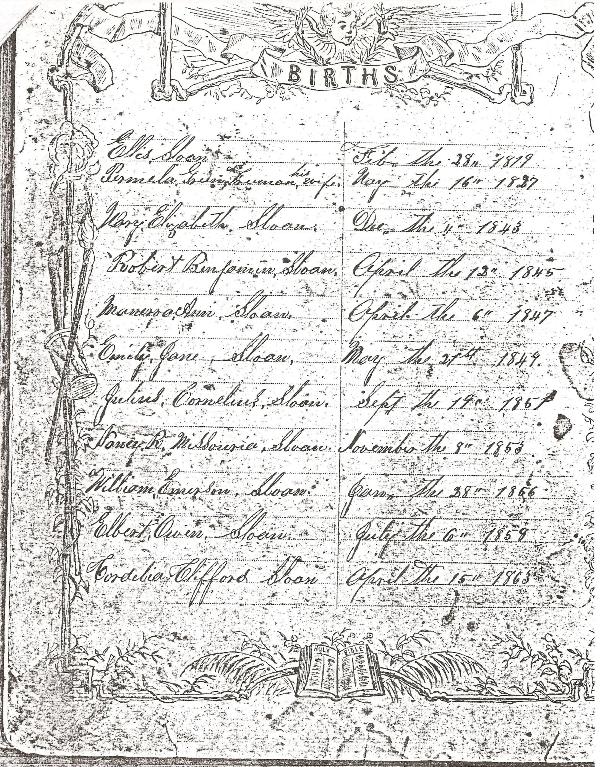 BIRTHS
Ellis Sloan Feb. the 28" 1819
Permela his wife. May the 16" 1827
Mary Elizabeth. Sloan. Dec. the 4" 1843
Robert Benjamin, Sloan. April the 12" 1845
Manerva Ann, Sloan. April the 6" 1847
Emily, Jane, Sloan, May the 21st 1849.
Julius, Cornelius, Sloan. Sept the 19" 1851
Nancy R. Missouria, Sloan. November the 8" 1853
William, Emerson, Sloan. Jan. the 28" 1856
Elbert, Owin, Sloan. July the 6" 1859
Cordelia Clifford Sloan April the 15" 1863
HOLY BIBLE